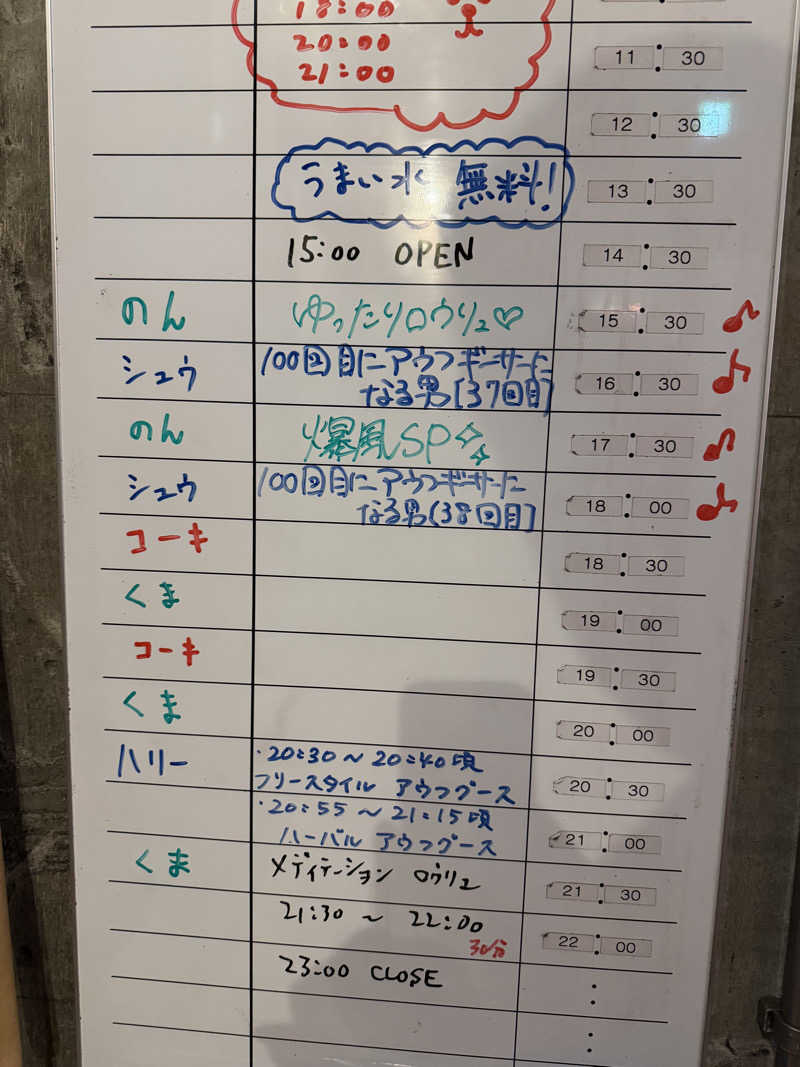 18:00
20:00
21:00
11:30
12:30
うまい水 無料!
13:30
15:00 OPEN
14:30
のん ゆったりロウリュ♡ 15:30
シュウ 100回目にアウフギーサーに
なる男[37回目] 16:30
のん 爆風SP 17:30
シュウ 100回目にアウフギーサーに
なる男(38回目] 18:00
コーキ 18:30
くま 19:00
コーキ 19:30
くま 20:00
ハリー ・20:30~20:40頃
フリースタイル アウフグース 20:30
・20:55~21:15頃
ハーバル アウフグース 21:00
くま メディテーション ロウリュ 21:30
21:30 ~ 22:00
30分
22:00
23:00 CLOSE